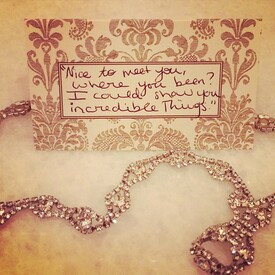 "Nice to meet you,
where you been?
I could show you
incredible Things"